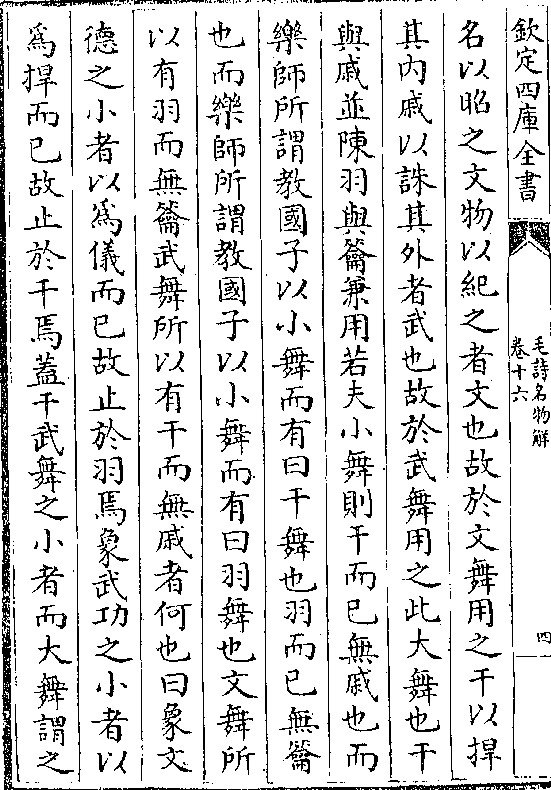 欽定四庫全書
毛詩名物解
卷十六
四
名以昭之文物以紀之者文也故於文舞用之干以捍
其内戚以誅其外者武也故於武舞用之此大舞也干
與戚並陳羽與籥兼用若夫小舞則干而已無戚也而
樂師所謂教國子以小舞而有曰干舞也羽而已無籥
也而樂師所謂教國子以小舞而有曰羽舞也文舞所
以有羽而無籥武舞所以有干而無戚者何也曰象文
德之小者以爲儀而已故止於羽焉象武功之小者以
爲捍而已故止於干焉蓋干武舞之小者而大舞謂之